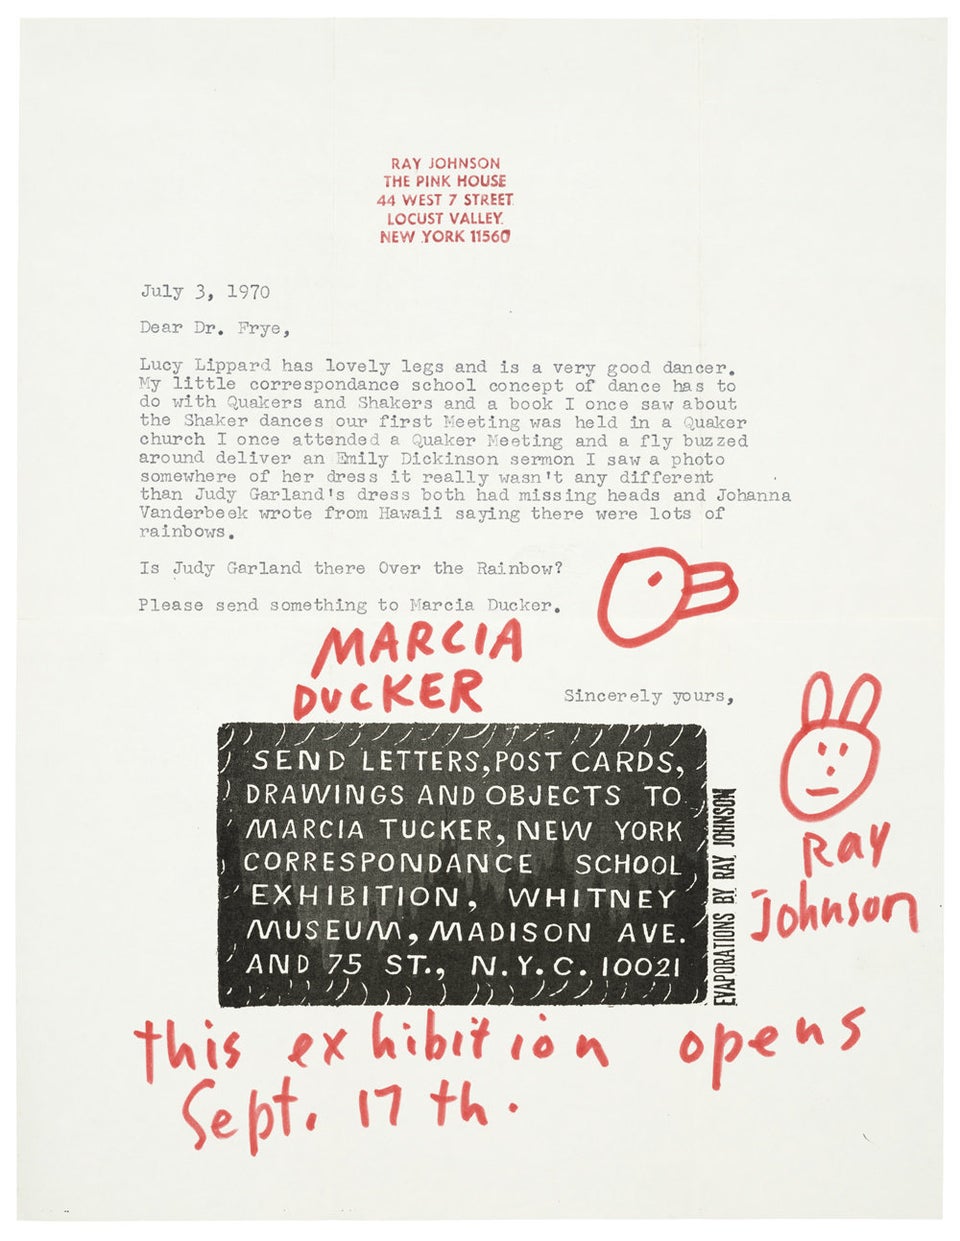 RAY JOHNSON
THE PINK HOUSE
44 WEST 7 STREET
LOCUST VALLEY
NEW YORK 11560
July 3, 1970
Dear Dr. Frye,
Lucy Lippard has lovely legs and is a very good dancer.
My little correspondance school concept of dance has to
do with Quakers and Shakers and a book I once saw about
the Shaker dances our first Meeting was held in a Quaker
church I once attended a Quaker Meeting and a fly buzzed
around deliver an Emily Dickinson sermon I saw a photo
somewhere of her dress it really wasn't any different
than Judy Garland's dress both had missing heads and Johanna
Vanderbeek wrote from Hawaii saying there were lots of
rainbows.
Is Judy Garland there Over the Rainbow?
Please send something to Marcia Ducker.
MARCIA
DUCKER
Sincerely yours,
SEND LETTERS, POST CARDS,
DRAWINGS AND OBJECTS TO
MARCIA TUCKER, NEW YORK
CORRESPONDANCE SCHOOL
EXHIBITION, WHITNEY
MUSEUM, MADISON AVE.
AND 75 ST., N.Y.C. 10021
EVAPORATIONS BY RAY JOHNSON
Ray
Johnson
this exhibition opens
Sept. 17th.